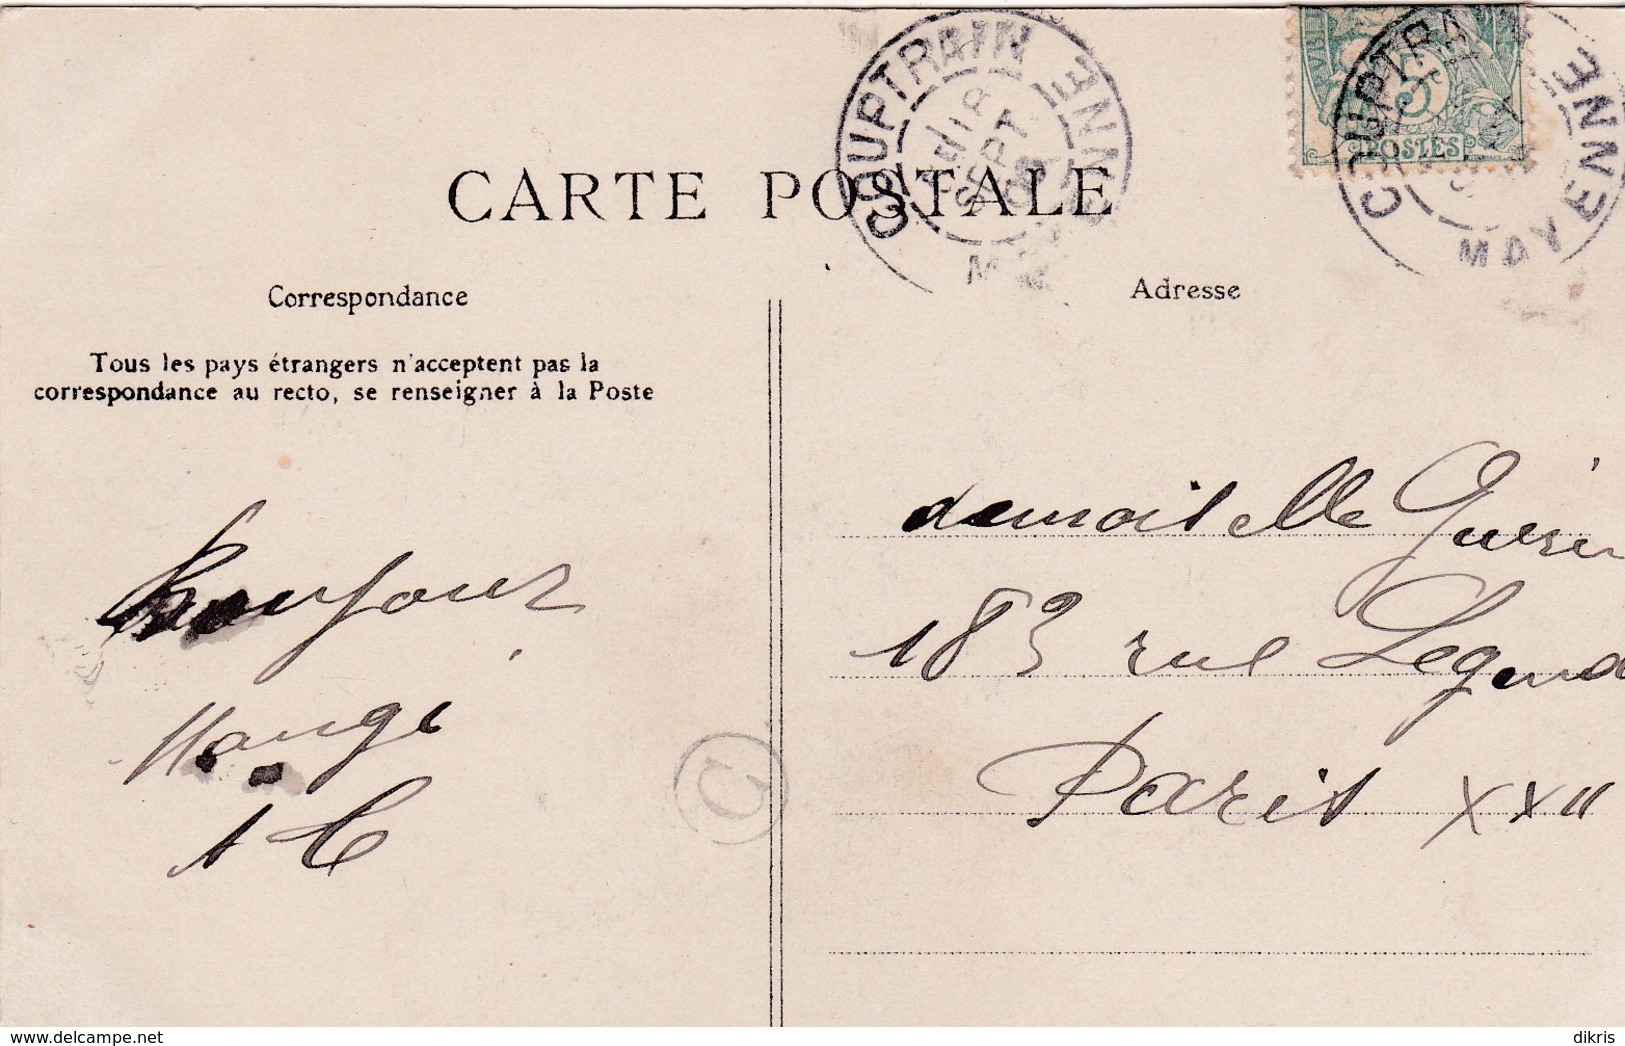 COUPTRAIN
MAYENNE
SEPT.
5c
POSTES
COUPTRAIN
MAYENNE
CARTE POSTALE
Correspondance
Adresse
Tous les pays étrangers n'acceptent pas la
correspondance au recto, se renseigner à la Poste
demoiselle Guérin
183 rue Legend
Paris XX
Bonjour
C
delcampe.net
dikris